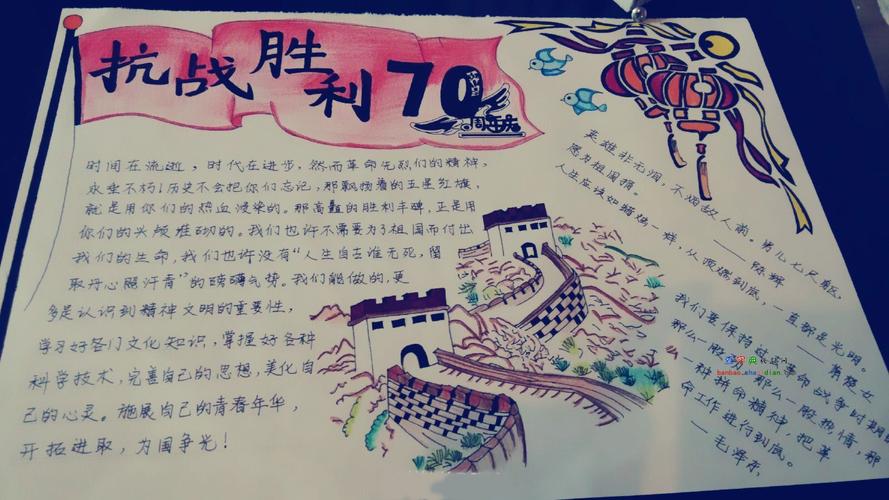 抗战胜利70
周年庆
时间在流逝，时代在进步，然而革命先烈们的精神，
永垂不朽！历史不会把你们忘记，那飘扬着的五星红旗，
就是用你们的热血浸染的。那高矗的胜利丰碑，正是用
你们的头颅堆砌的。我们也许不需要为了祖国而付出
我们的生命，我们也许没有“人生自古谁无死，留
取丹心照汗青”的磅礴气势。我们能做的，更
多是认识到精神文明的重要性，
学习好各门文化知识，掌握好各种
科学技术，完善自己的思想，美化自
己的心灵。施展自己的青春年华，
开拓进取，为国争光！
英雄非无泪，不洒敌人前。男儿七尺躯，
愿为祖国捐。
——陈辉
人生应该如蜡烛一样，从顶燃到底，一直都是光明。
——萧楚女
我们要保持过去革命战争时期的
那么一股劲，那么一股热情，那
一种拼命精神，把革
命工作进行到底。
——毛泽东